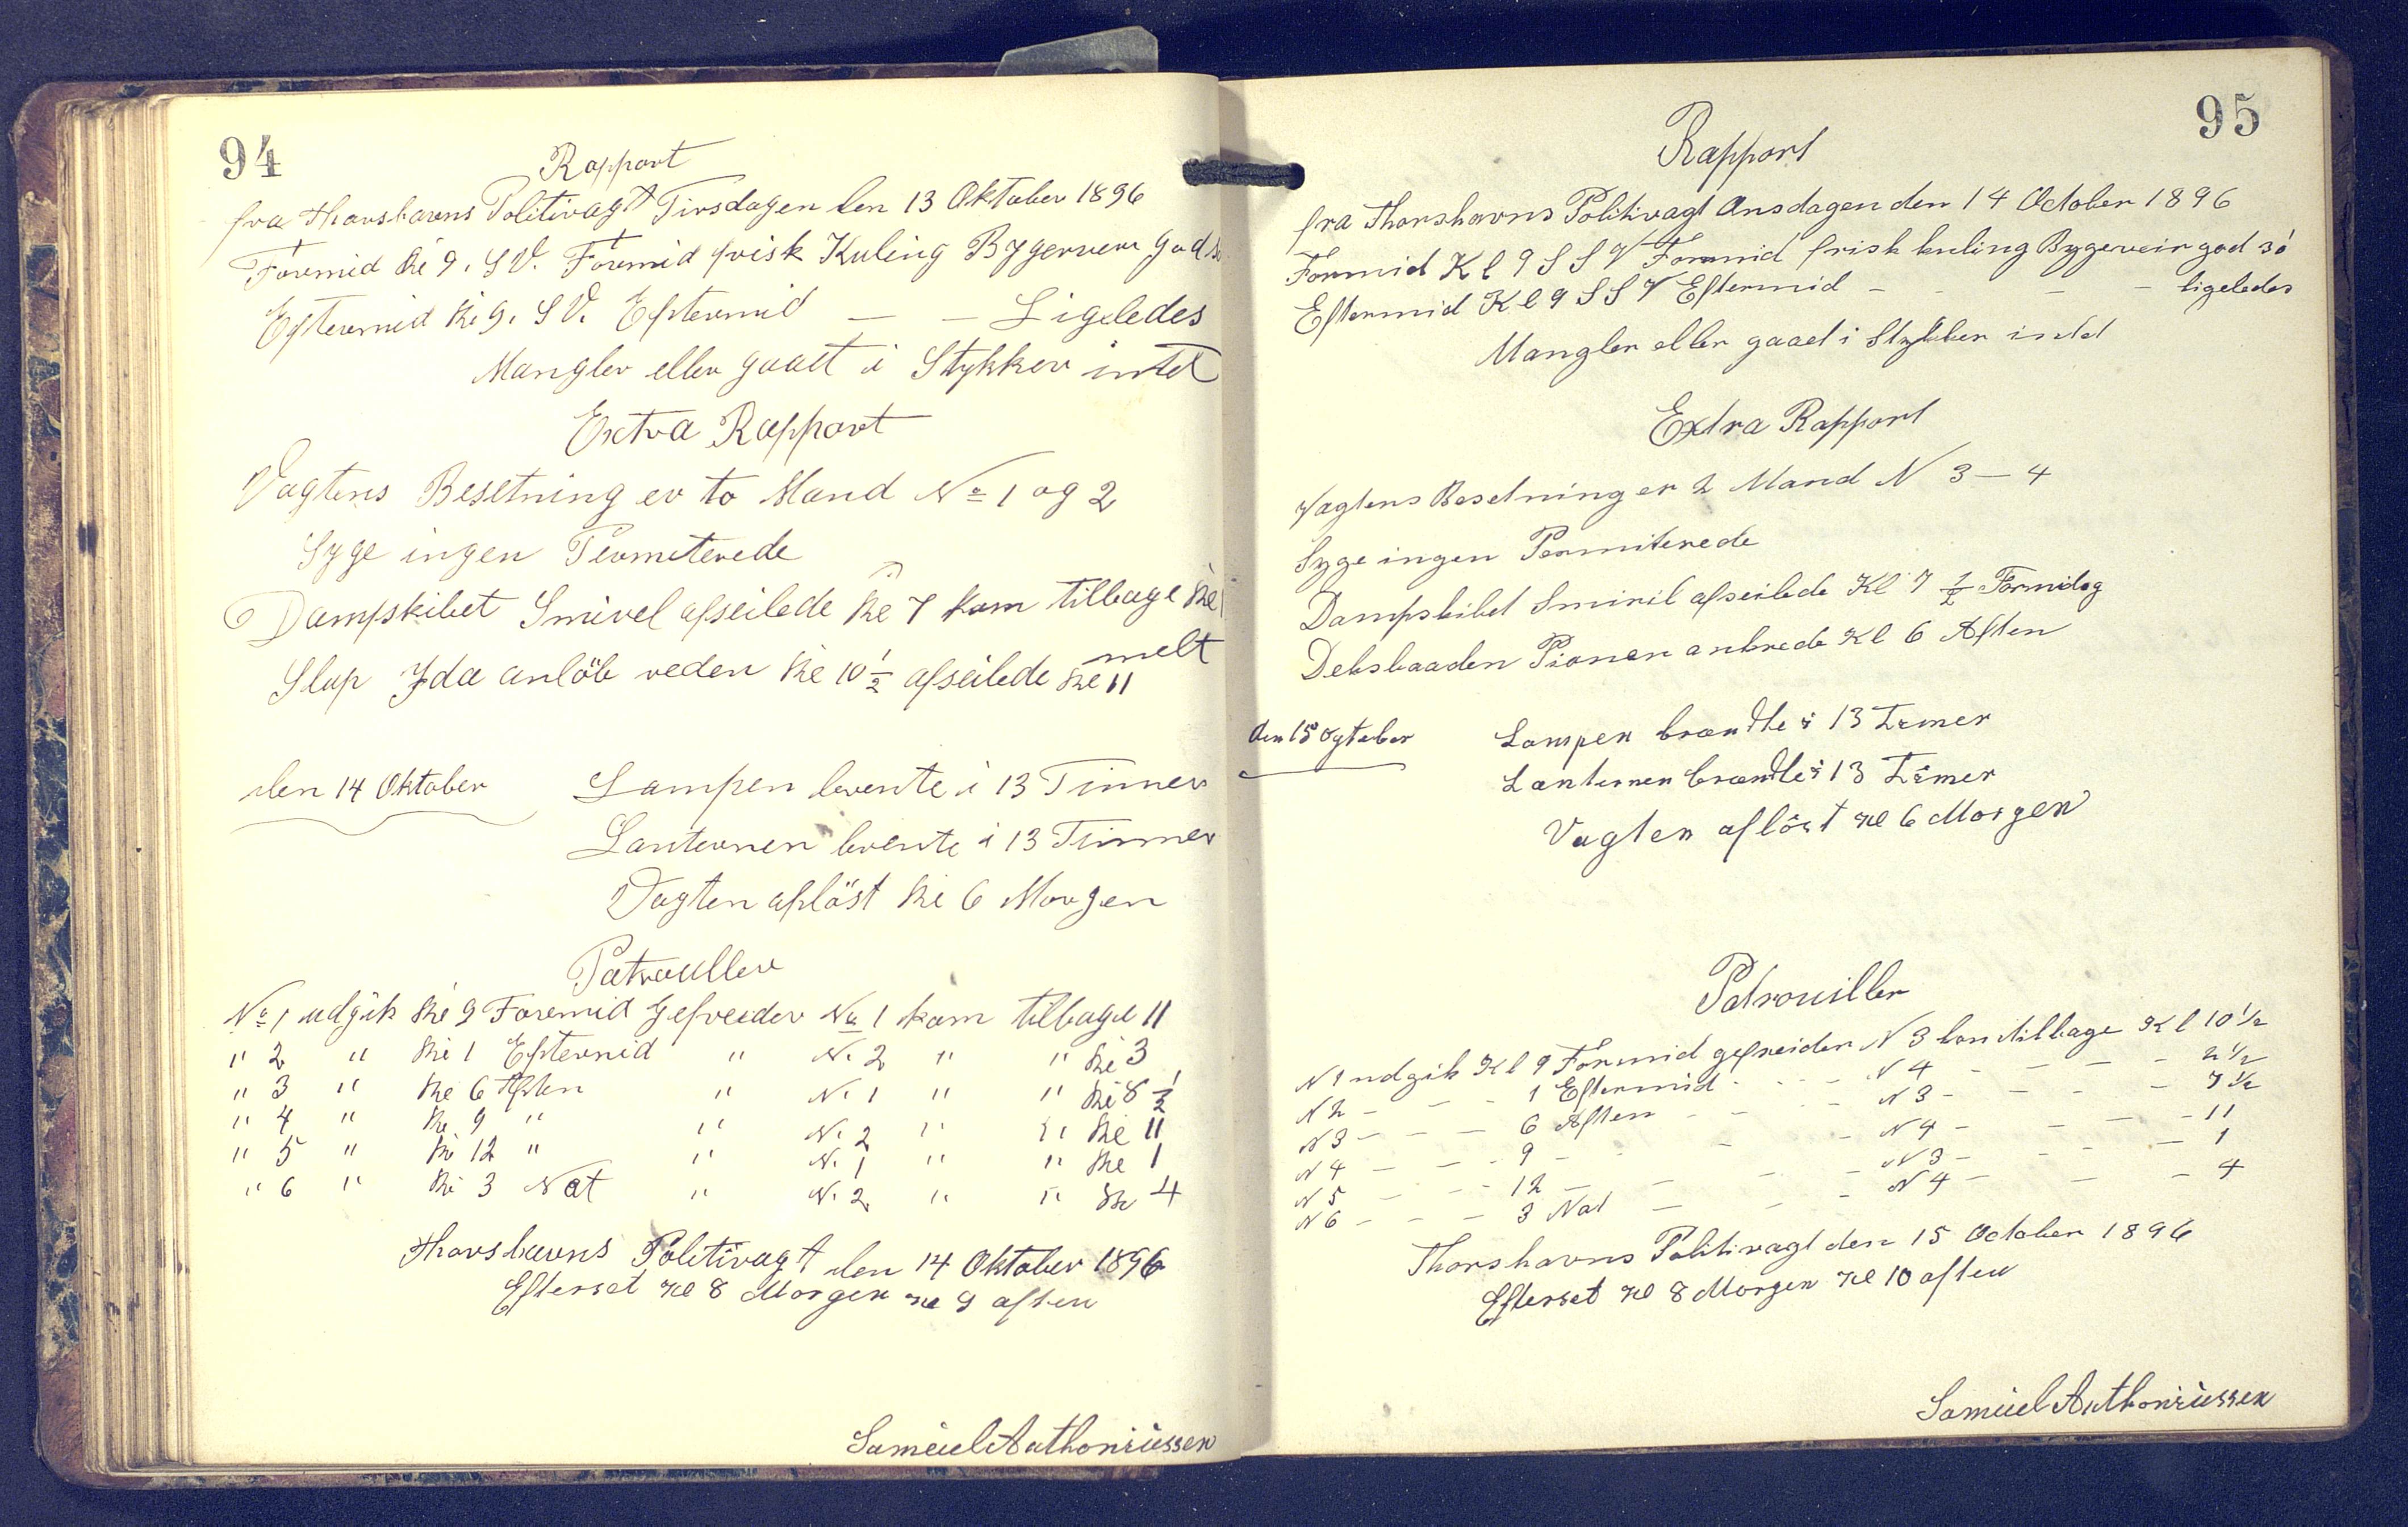 94
Rapport
fra Thorshavns Politivagt Tirsdagen den 13 Oktober 1896
Foremid Kl 9. S V. Foremid frisk Kuling Bygerveir god
Eftermid Kl 9. S V. Eftermid — — Ligeledes
Mangler eller gaaet i Stykker intet
Extra Rapport
Vagtens Besetning er to Mand No 1 og 2
Syge ingen Permeterede
Dampskibet Smirel afseilede Kl 7 kom tilbage Kl
melt
Slup Ida anlöb reden Kl 10 1/2 afseilede Kl 11
den 14 Oktober
Lampen brente i 13 Timer
Lanternen brente i 13 Timmer
Vagten aflöst Kl 6 Morgen
Patrouller
No 1 udgik Kl 9 Foremid Gefreider No 1 kom tilbage 11
" 2 " Kl 1 Eftermid " N. 2 " " Kl 3
" 3 " Kl 6 Aften " N. 1 " " Kl 8 1/2
" 4 " Kl 9 " " N. 2 " " Kl 11
" 5 " Kl 12 " " N. 1 " " Kl 1
" 6 " Kl 3 Nat " N. 2 " " Kl 4
Thorshavns Politivagt den 14 Oktober 1896
Efterset Kl 8 Morgen Kl 9 aften
Samuel Anthoniussen
95
Rapport
fra Thorshavns Politivagt Onsdagen den 14 October 1896
Formid Kl 9 S S V Formid frisk kuling Bygeveir god só
Eftermid Kl 9 S S V Eftermid - - - - ligeledes
Mangler eller gaaet i Stykker intet
Extra Rapport
Vagtens Besetning er 2 Mand N 3 — 4
Syge ingen Permiterede
Dampskibet Smiril afseilede Kl 7 1/2 Formidag
Deksbaaden Pioner ankrede Kl 6 Aften
den 15 ogtober
Lampen brændte i 13 Timer
Lanternen brændte i 13 Timer
Vagten aflöst Kl 6 Morgen
Patrouiller
N 1 udgik Kl 9 Formid gefreider N 3 kom tilbage Kl 10 1/2
N 2 - - - 1 Eftermid - - - N 4 - - - - 2 1/2
N 3 - - - 6 Aften - - - N 3 - - - - 7 1/2
N 4 - - - 9 - - - N 4 - - - - 11
N 5 - - - 12 - - - N 3 - - - - 1
N 6 - - - 3 Nat - - - N 4 - - - 4
Thorshavns Politivagt den 15 October 1896
Efterset Kl 8 Morgen Kl 10 aften
Samuel Anthoniussen